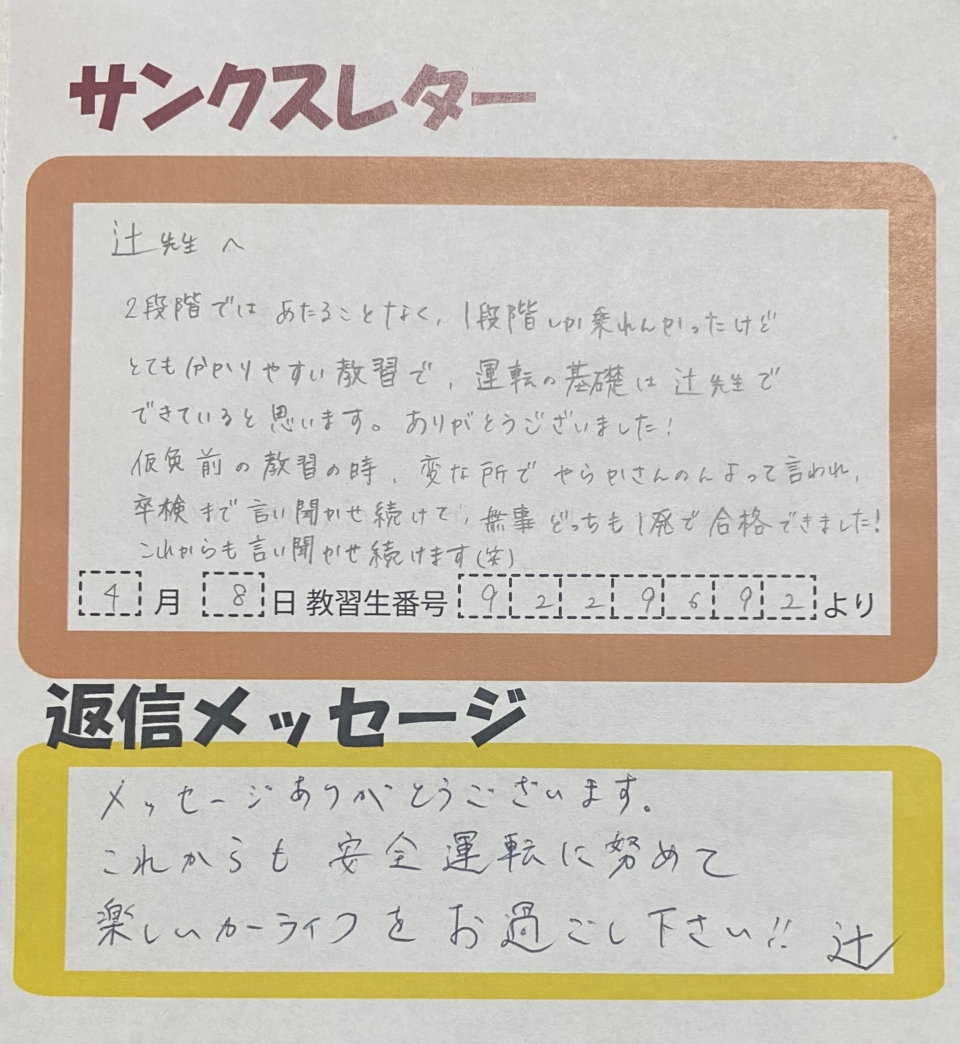 サンクスレター
辻先生へ
2段階ではあたることなく、1段階しか乗れんかったけど
とても分かりやすい教習で、運転の基礎は辻先生で
できていると思います。ありがとうございました!
仮免前の教習の時、変な所でやらかさんのんよって言われ、
卒検まで言い聞かせ続けて、無事どっちも1発で合格できました!
これからも言い聞かせ続けます(笑)
4月8日教習生番号9229692より
返信メッセージ
メッセージありがとうございます。
これからも安全運転に努めて
楽しいカーライフをお過ごし下さい!! 辻